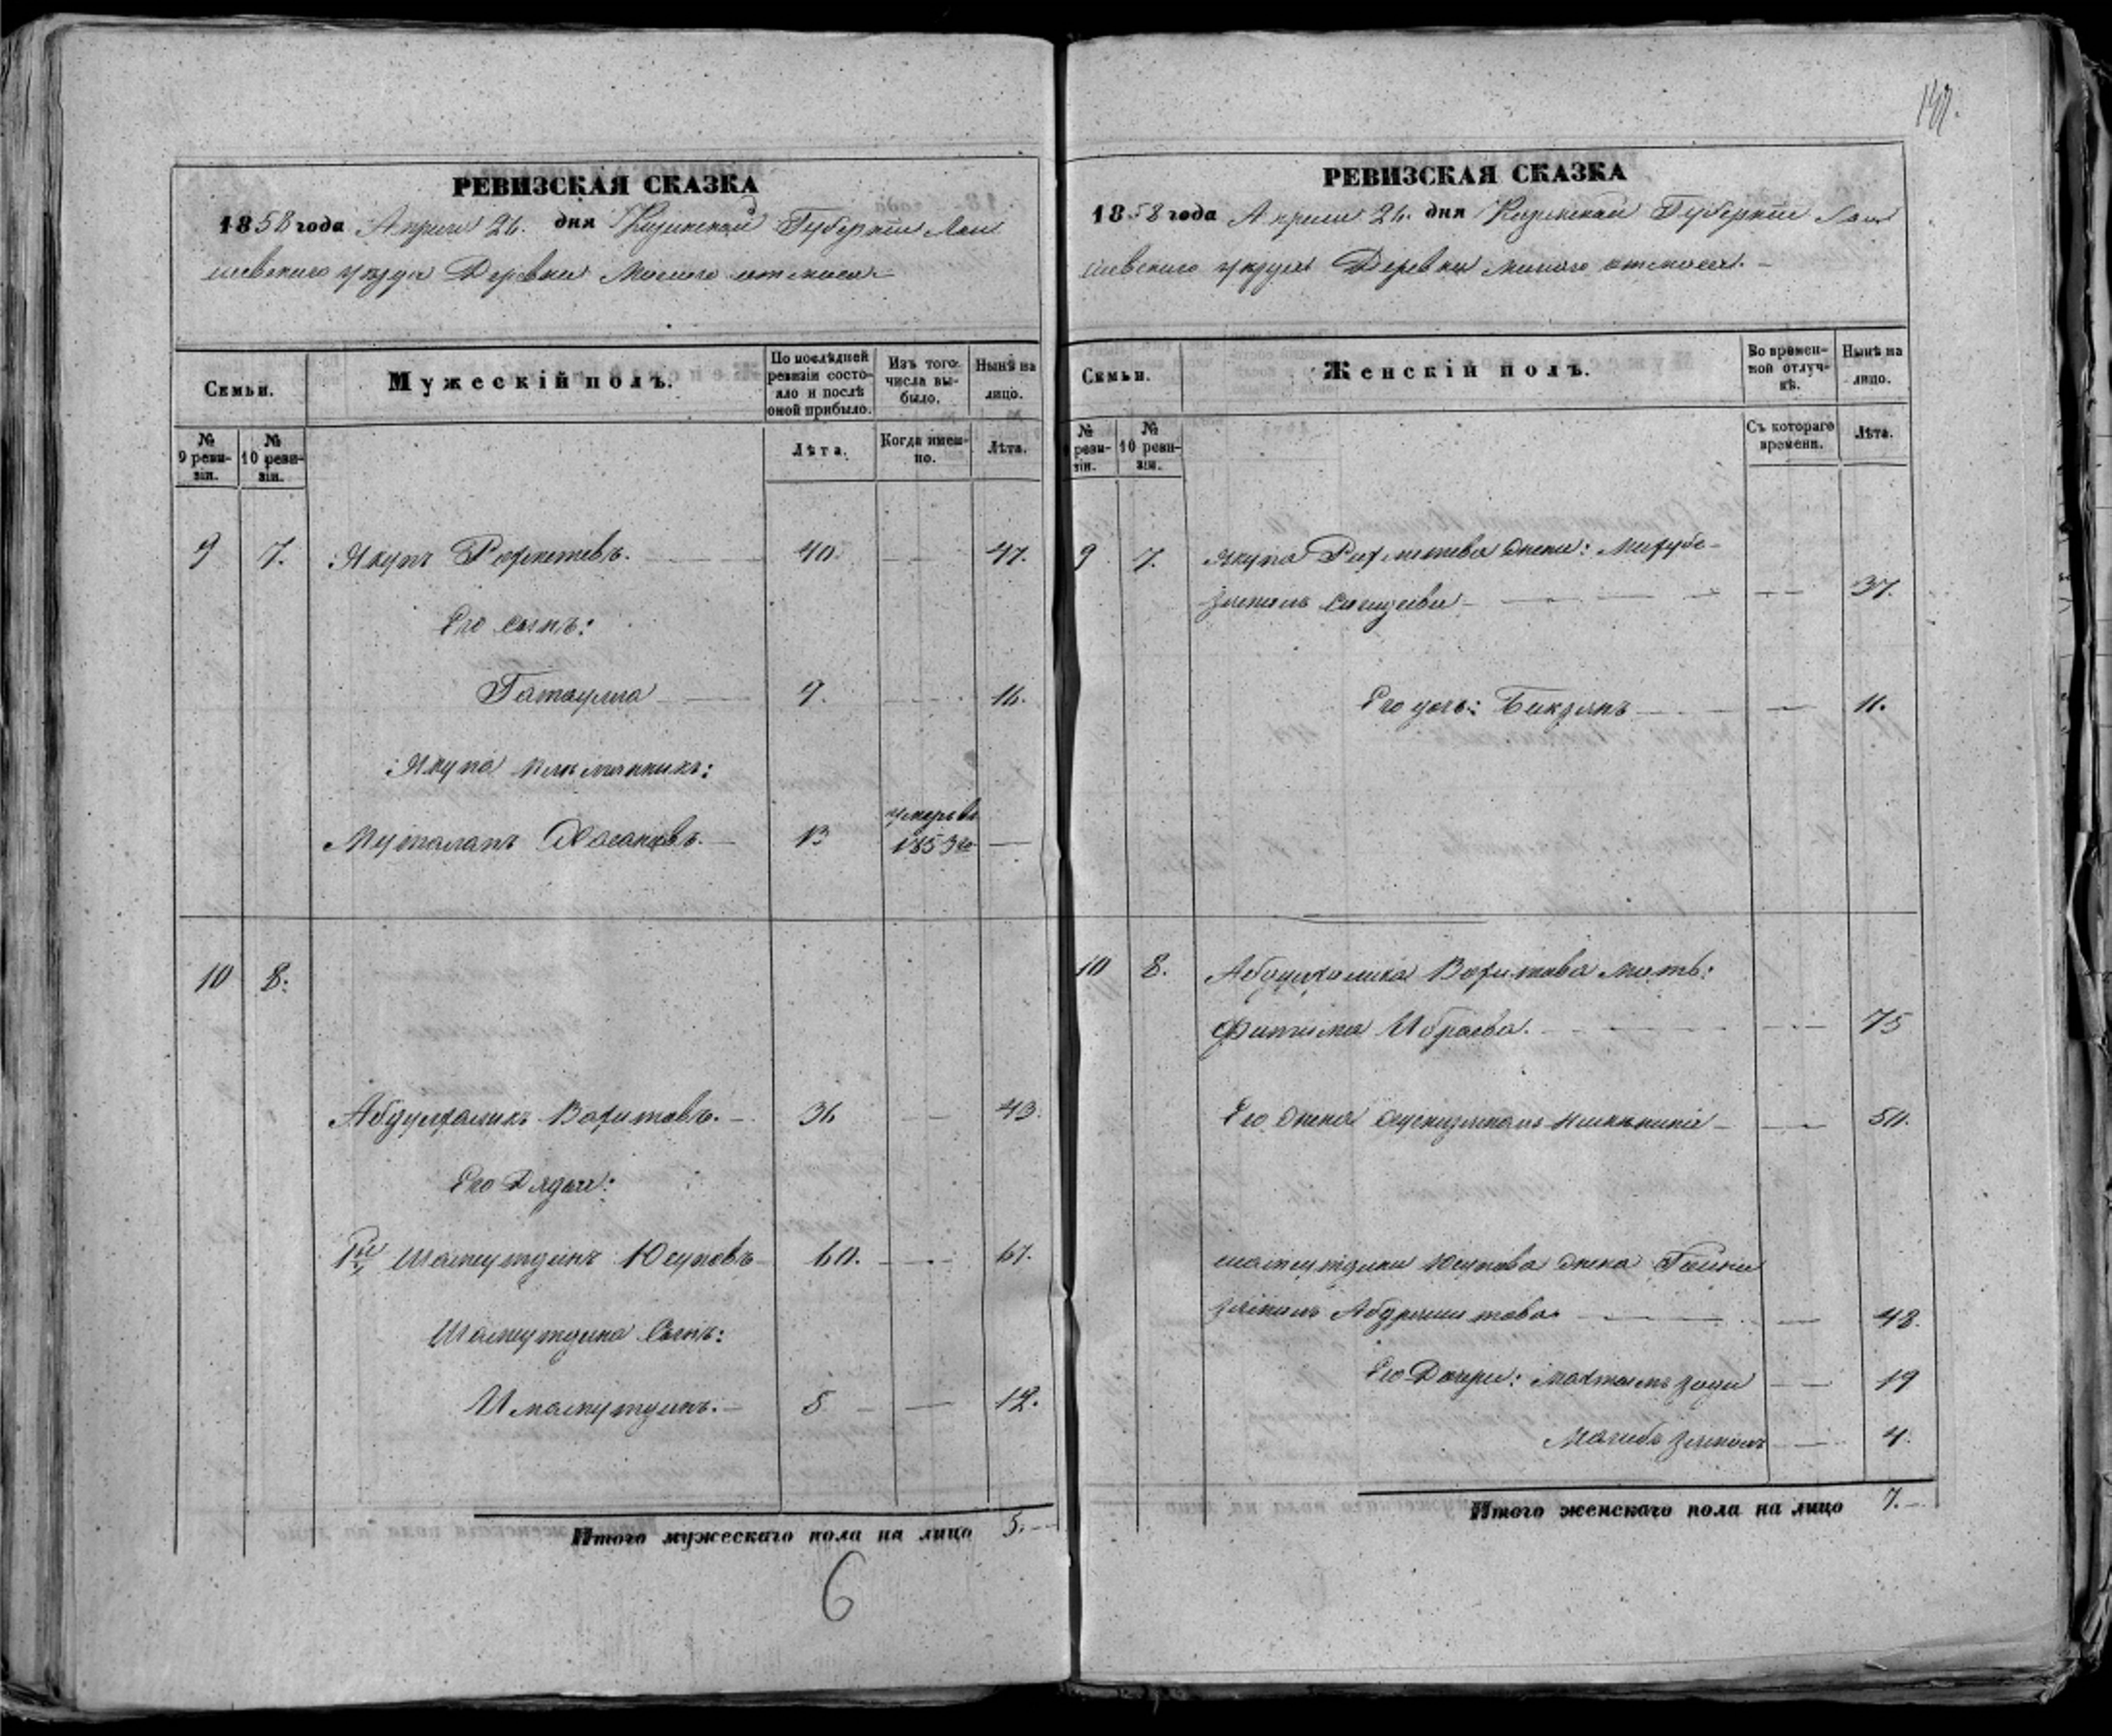 РЕВИЗСКАЯ СКАЗКА
1858 года Апреля 26. дня Казанской Губернии Лаи
шевского уезда Деревни Малого
Семьи.
Мужескій полъ.
По послѣдней ревизіи состояло и послѣ оной прибыло.
Изъ того числа выбыло.
Нынѣ на лицо.
№ 9 ревизіи.
№ 10 ревизіи.
Лѣта.
Когда именно.
Лѣта.
9 7. Якупъ Рахметевъ. 40. 47.
Его сынъ:
Гатаулла 9. 16.
Якупа племянникъ:
Муталапъ Хасановъ. 13 умеръ въ 1853 го
10 8.
Абдулхаликъ Вахитовъ. 36 43.
Его Дядя:
Шамсутдинъ Юсуповъ 60. 67.
Шамсутдина Сынъ:
Имамутдинъ. 5 12.
Итого мужескаго пола на лицо 5.
6
РЕВИЗСКАЯ СКАЗКА
1858 года Апреля 26. дня Казанской Губернии Лаи
шевского уезда Деревни Малого
Семьи.
Женскій полъ.
Во временной отлучкѣ.
Нынѣ на лицо.
№ ревизіи.
№ 10 ревизіи.
Съ котораго времени.
Лѣта.
9 7. Якупа Рахметева жена:
37.
Его дочь: Бикзянъ 11.
10 8. Абдулхалика Вахитова мать:
Фатима Ибраева. 75
Его жена 50.
Шамсутдина Юсупова жена Гайни
зямалъ Абдрашитова 48.
Его Дочери: 19
4.
Итого женскаго пола на лицо 7.